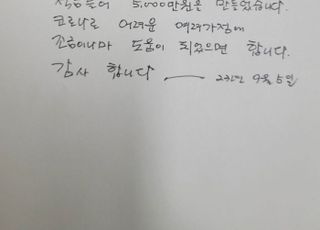 5,000만원을 만들었습니다.
코로나로 어려운 여러가정에
조금이나마 도움이 되었으면 합니다.
감사 합니다 — 9월 5일